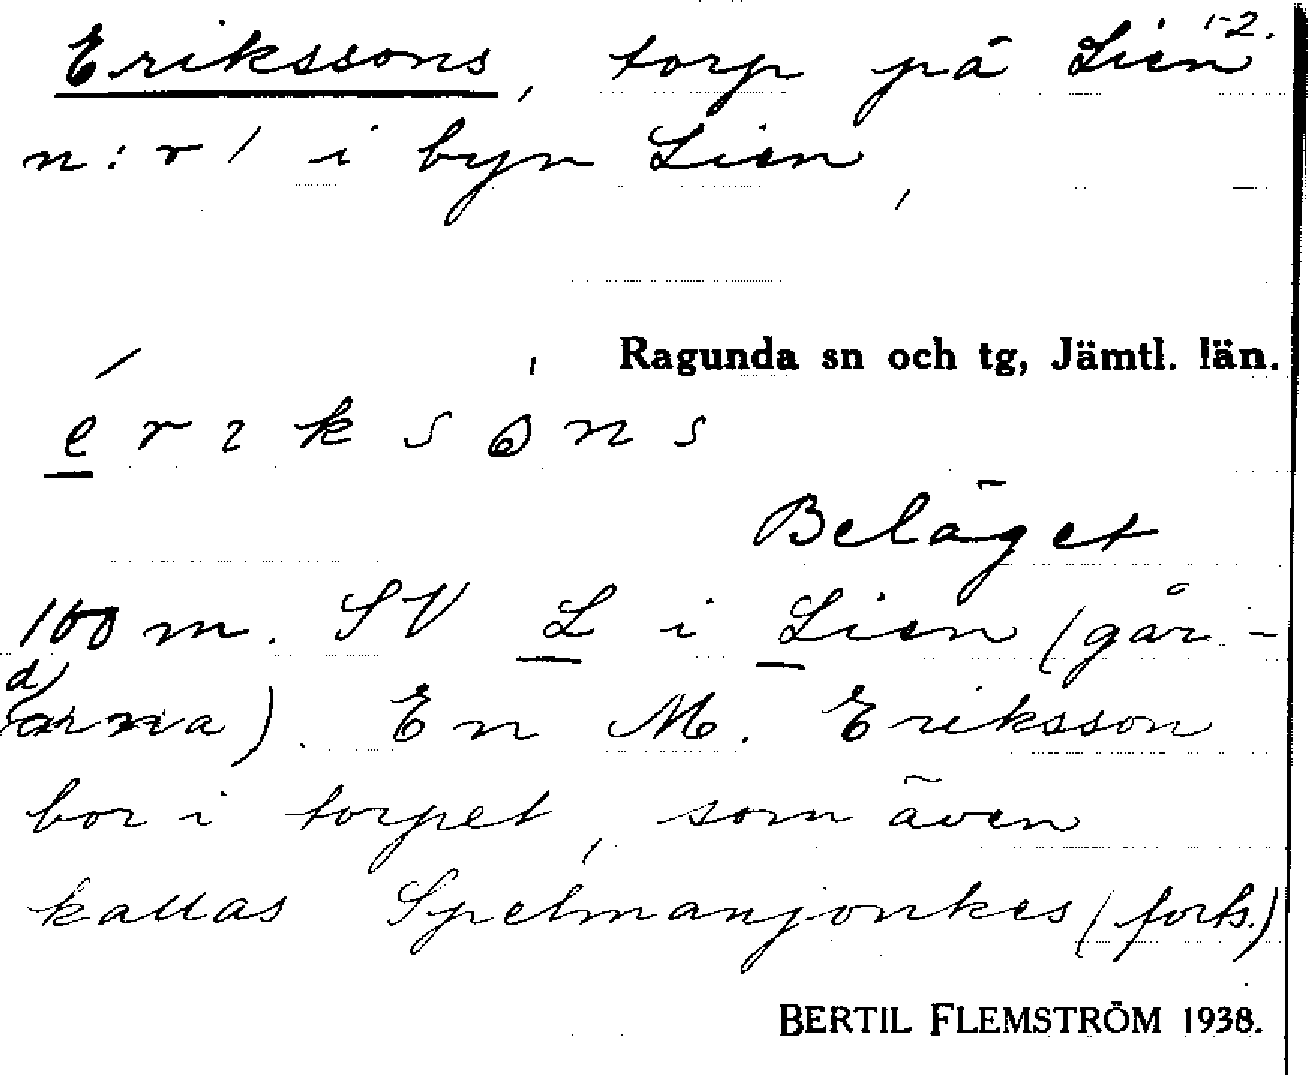 Erikssons, torp på Lien 1-2.
n:r 1 i byn Lien,
Ragunda sn och tg, Jämtl. län.
é r ı k s ɷ n s
Beläget
100 m. SV L i Lien (går-
darna). En M. Eriksson
bor i torpet, som även
kallas Spelmanjonkes (forts.)
BERTIL FLEMSTRÖM 1938.